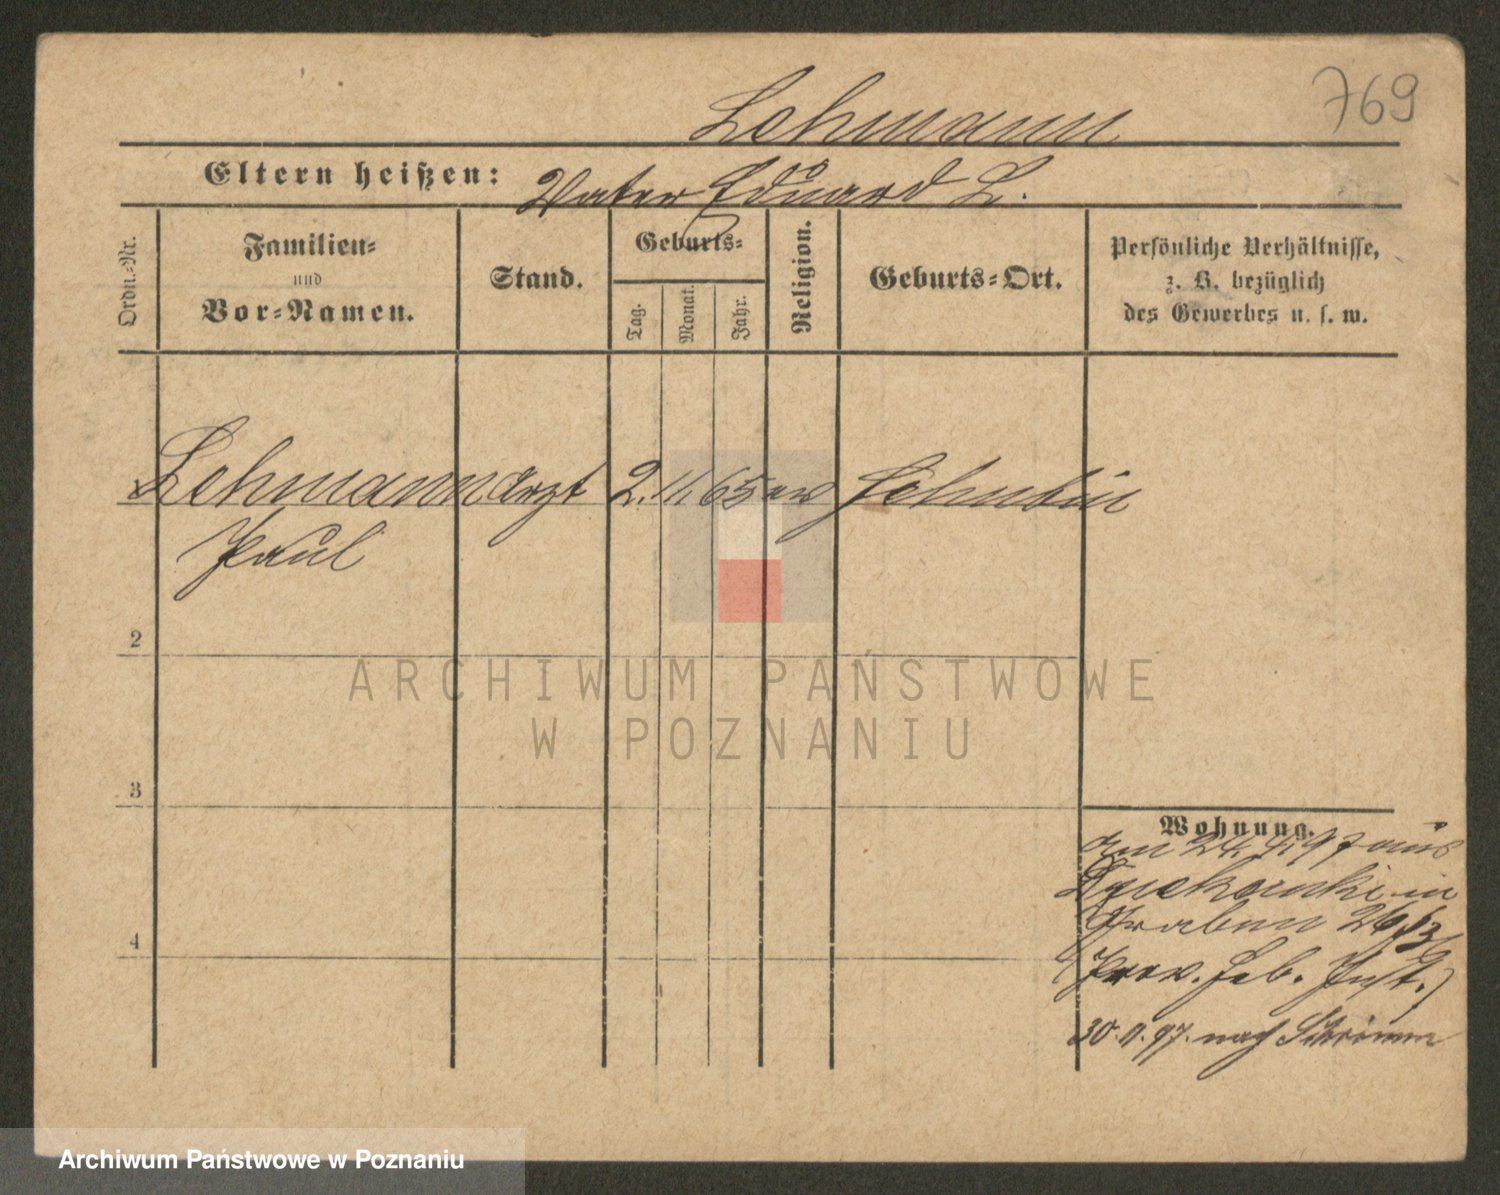 769
Lehmann
Eltern heißen: Vater Eduard L.
Ordn.-Nr.
Familien-
und
Vor-Namen.
Stand.
Geburts-
Tag.
Monat.
Jahr.
Religion.
Geburts-Ort.
Persönliche Verhältnisse,
z. B. bezüglich
des Gewerbes u. s. w.
Lehmann Arzt 2. 11. 65 ev
Paul
2
3
4
ARCHIWUM PAŃSTWOWE
W POZNANIU
Wohnung.
am 24. 4. 97 aus
in
Graben 26
Prov. Heb. Inst.)
30. 11. 97. nach Schrimm
Archiwum Państwowe w Poznaniu